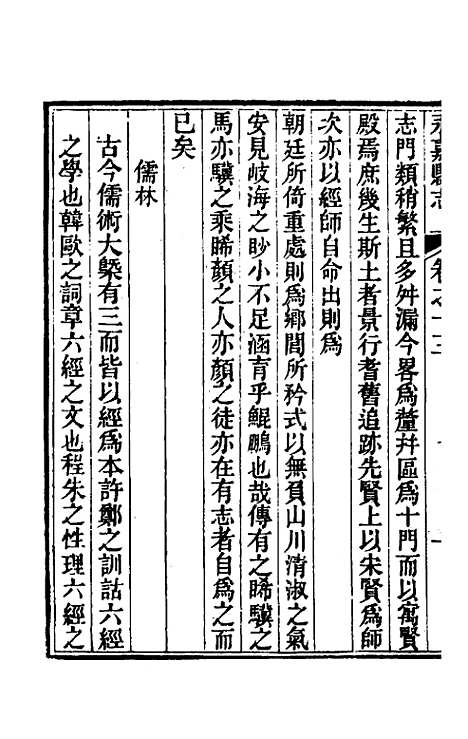 永嘉縣志 卷之十三
志門類稍繁且多舛漏今畧爲釐并區爲十門而以寓賢
殿焉庶幾生斯土者景行耆舊追跡先賢上以宋賢爲師
次亦以經師自命出則爲
朝廷所倚重處則爲鄉閭所矜式以無負山川清淑之氣
安見岐海之眇小不足涵育乎鯤鵬也哉傳有之睎驥之
馬亦驥之乘睎顏之人亦顏之徒亦在有志者自爲之而
已矣
儒林
古今儒術大槩有三而皆以經爲本許鄭之訓詁六經
之學也韓歐之詞章六經之文也程朱之性理六經之